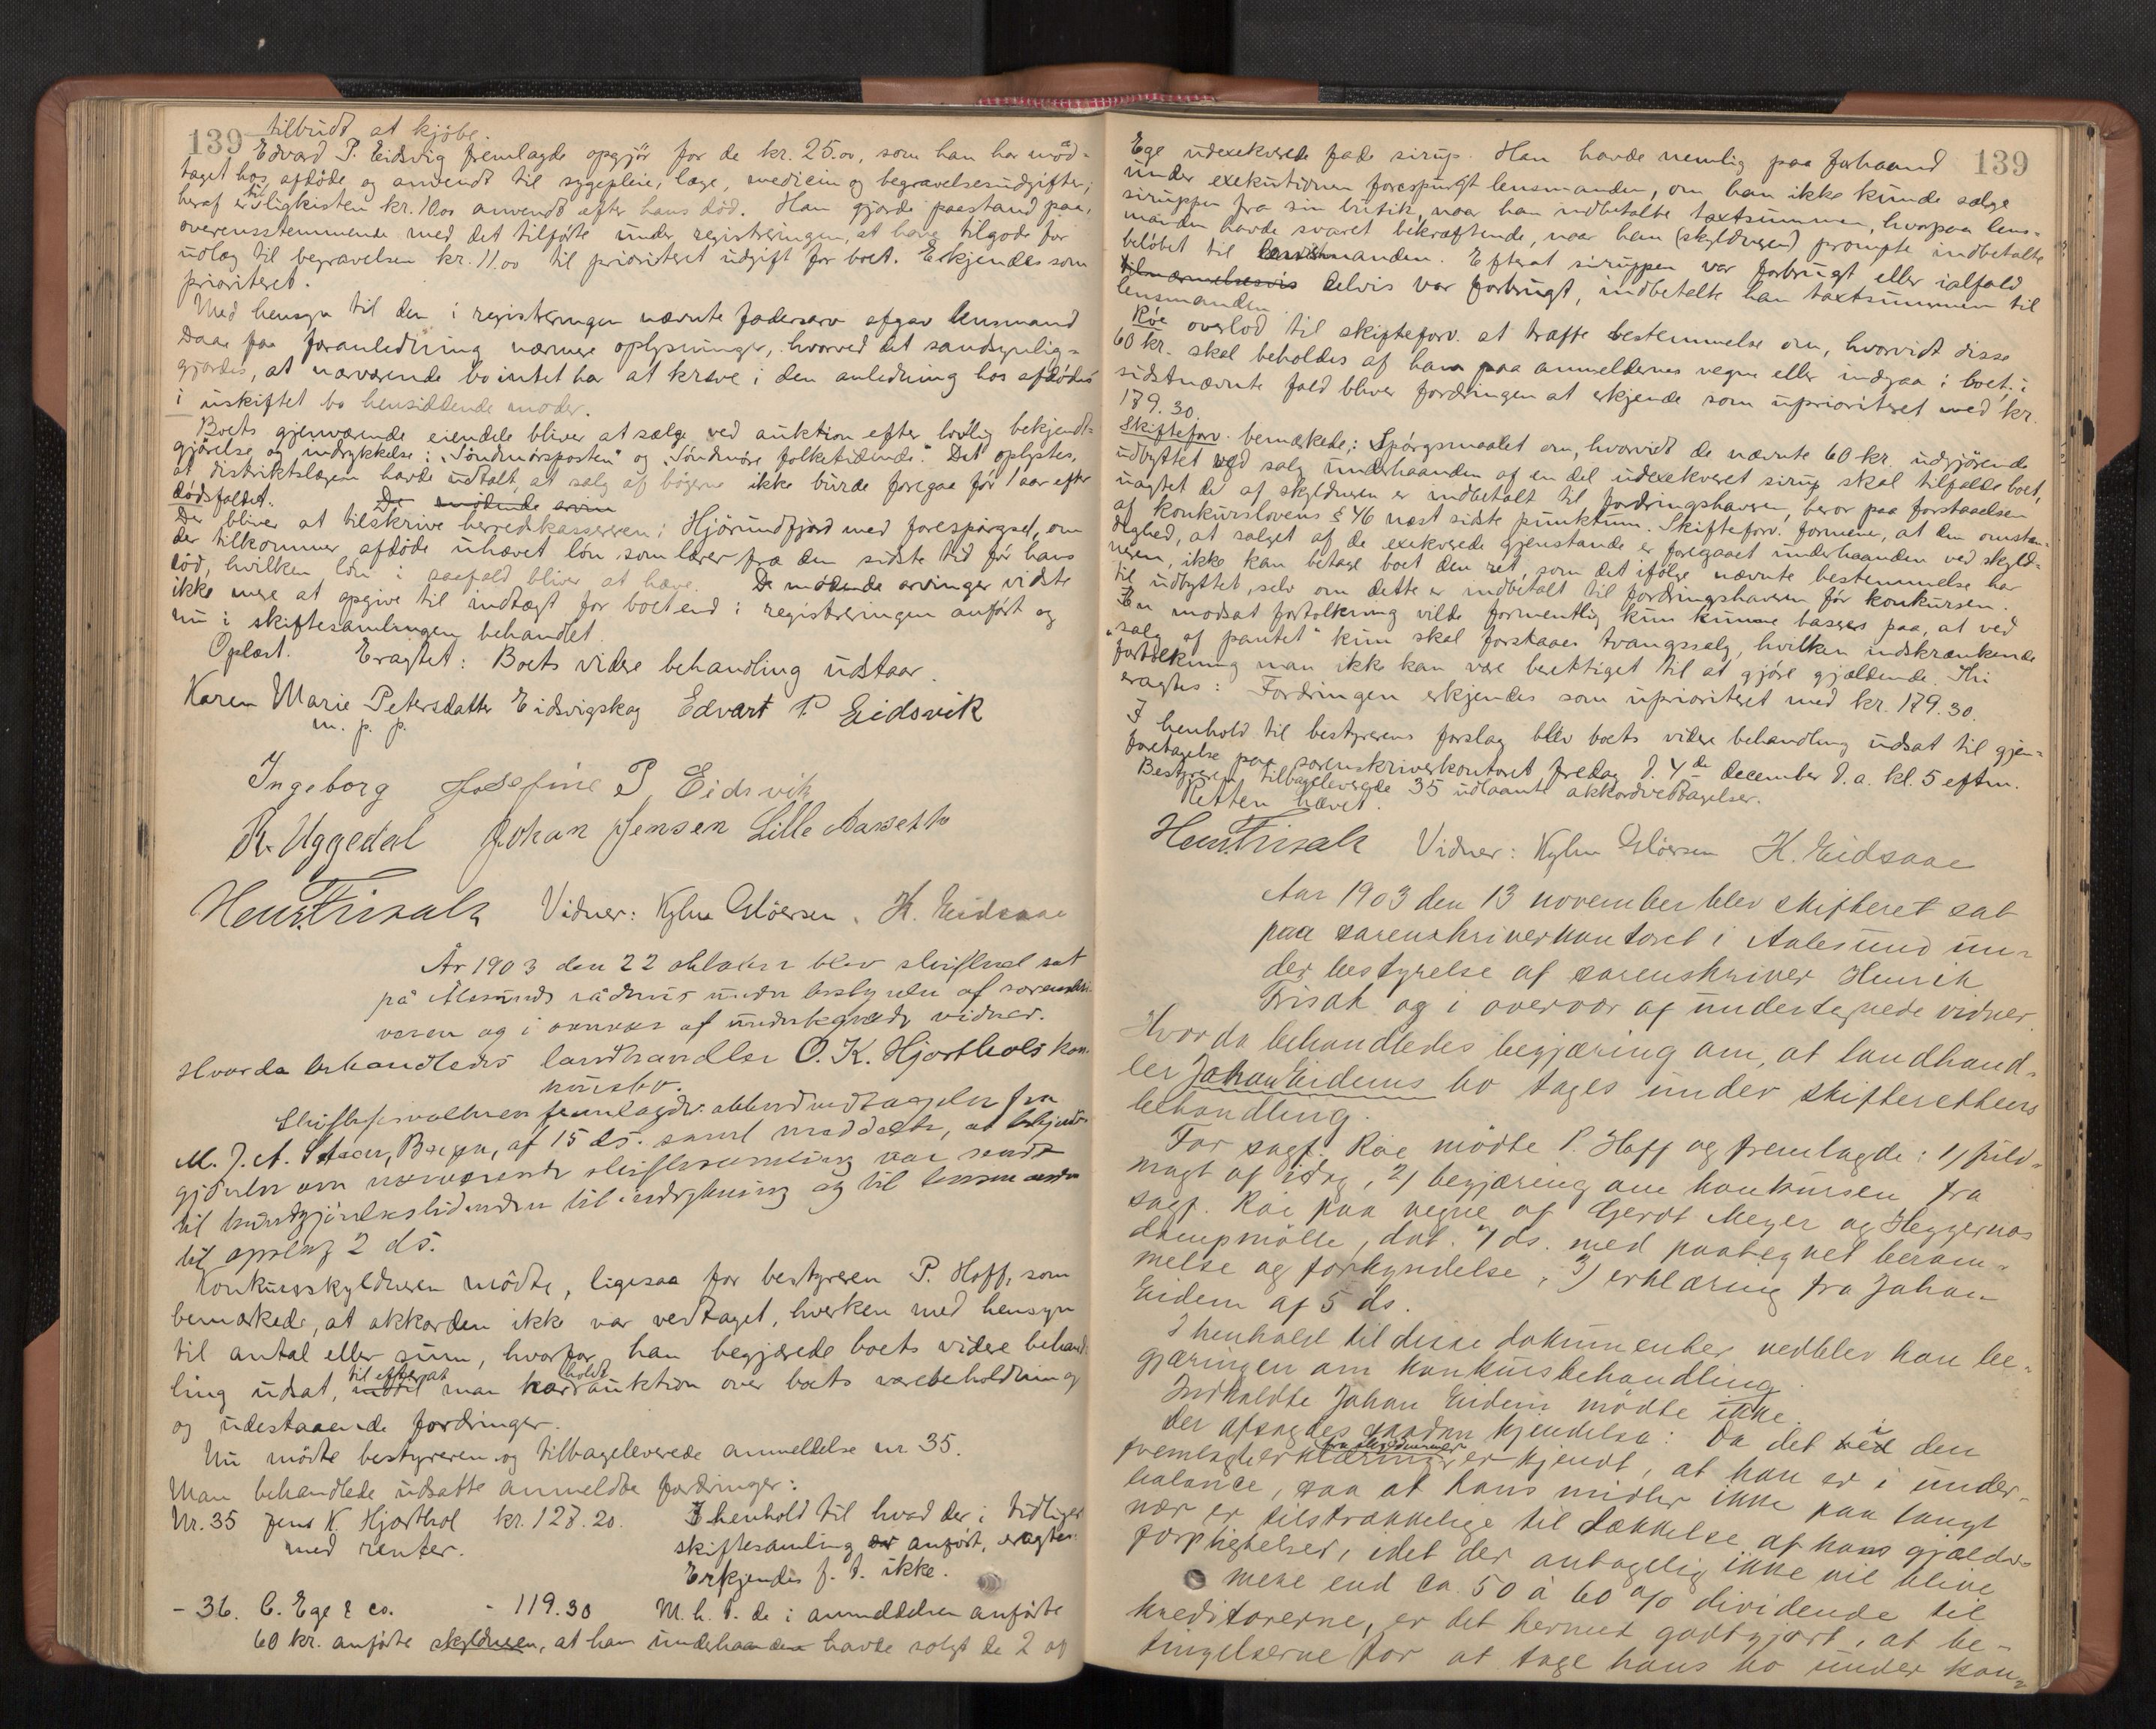 139
tilbudt at kjöbe.
Edvard P. Eidsvig fremlagde opgjör for de kr. 25.00, som han har mod-
taget hos afdöde og anvendt til sygepleie, læge, medicin og begravelsesudgifter;
heraf er til ligkisten kr. 10.00 anvendt efter hans död. Han gjorde paastand paa,
overensstemmende med det tilförte under registreringen, at have tilgode for
udlæg til begravelsen kr. 11.00 til prioriteret udgift for boet. Erkjendes som
prioriteret.
Med hensyn til den i registreringen nævnte fadersarv afgav lensmand
Daae paa foranledning nærmere oplysninger, hvorved det sandsynlig-
gjordes, at nærværende bo intet har at kræve i den anledning hos afdödes
i uskiftet bo hensiddende moder.
Boets gjenværende eiendele bliver at sælge ved auktion efter lovlig bekjendt-
gjörelse og indrykkelse i „Söndmörsposten" og „Söndmöre folketidende." Det oplystes,
at distriktslægen havde udtalt, at salg af bögerne ikke burde foregaa för 1 aar efter
dödsfaldet. De mödende arvin
Der bliver at tilskrive herredskassereren i Hjörundfjord med forespörgsel, om
der tilkommer afdöde uhævet lön som lærer fra den sidste tid för hans
död, hvilken lön i saafald bliver at hæve. De mödende arvinger vidste
ikke mere at opgive til indtægt for boet end i registreringen anfört og
nu i skiftesamlingen behandlet.
Oplæst. Eragtet: Boets videre behandling udstaar.
Karen Marie Petersdatter Eidsvigskog Edvart P. Eidsvik
m. p. p.
Ingeborg Josefine P. Eidsvik
R. Uggedal Johan Jensen Lille Aarseth
Henr. Frisak Vidner: Kylm Glöersen. K. Eidsaae
År 1903 den 22 oktober blev skifteret sat
på Ålesunds rådhus under bestyrelse af sorenskri-
veren og i overvær af undertegnede vidner.
Hvorda behandledes landhandler O. K. Hjortdols kon-
kursbo.
Skifteforvalteren fremlagde akkordvedtagelse fra
M. J. A. Bergen, af 15 ds. samt meddelte, at bekjendt-
gjörelse om nærværende skiftesamling var sendt
til kundgjörelsestidenden til indrykning og til lensmanden
til opslag 2 ds.
Konkursskyldneren mödte, ligesaa for bestyreren P. Hoff, som
bemærkede, at akkorden ikke var vedtaget, hverken med hensyn
til antal eller sum, hvorfor han begjærede boets videre behand-
ling udsat, indtil til efter at man har holdt auktion over boets varebeholdning
og udestaaende fordringer.
Nu mödte bestyreren og tilbageleverede anmeldelse nr 35.
Man behandlede udsatte anmeldte fordringer:
Nr. 35 Jens K. Hjortdol kr. 128.20. I henhold til hvad der i tidligere
med renter. skiftesamling er anfört, eragtes:
Erkjendes f. t. ikke.
- 36. C. Ege & co. - 119.30 M. h. t. de i anmeldelsen anförte
60 kr. anförte skyldneren, at han underhaanden havde solgt de 2 af
139
Ege udexekverede fade sirup. Han havde nemlig paa forhaand
under exekutionen forespurgt lensmanden, om han ikke kunde sælge
siruppen fra sin butik, naar han indbetalte taxtsummen, hvorpaa lens-
manden havde svaret bekræftende, naar han (skyldneren) prompte indbetalte
belöbet til lensmanden. Efterat siruppen var forbrugt eller ialfald
tilnærmelsesvis delvis var forbrugt, indbetalte han taxtsummen til
lensmanden.
Röe overlod til skifteforv. at træffe bestemmelse om, hvorvidt disse
60 kr. skal beholdes af ham paa anmeldernes vegne eller indgaa i boet; i
sidstnævnte fald bliver fordringen at erkjende som uprioriteret med kr.
179.30.
Skifteforv. bemærkede: Spörgsmaalet om, hvorvidt de nævnte 60 kr. udgjörende
udbyttet ved salg underhaanden af en del udexekveret sirup skal tilfalde boet,
uagtet de af skyldneren er indbetalt til fordringshaveren, beror paa forstaaelsen
af konkurslovens § 46 næst sidste punktum. Skifteforv. formener, at den omstæn-
dighed, at salget af de exekverede gjenstande er foregaaet underhaanden ved skyld-
neren, ikke kan betage boet den ret, som det ifölge nævnte bestemmelse har
til udbyttet, selv om dette er indbetalt til fordringshaveren för konkursen.
En modsat fortolkning vilde formentlig kun kunne baseres paa, at ved
„salg af pantet" kun skal forstaaes tvangssalg, hvilken indskrænkende
fortolkning man ikke kan være berettiget til at gjöre gjældende. Thi
eragtes: Fordringen erkjendes som uprioriteret med kr. 179.30.
I henhold til bestyrerens forslag blev boets videre behandling udsat til gjen-
foretagelse paa sorenskriverkontoret fredag d. 4de december d. a. kl. 5 eftm.
Bestyreren tilbageleverede 35 udlaante akkordvedtagelser.
Retten hævet.
Henr. Frisak Vidner: Kylm Glöersen K. Eidsaae
Aar 1903 den 13 november blev skifteret sat
paa sorenskriverkontoret i Aalesund un-
der bestyrelse af sorenskriver Henrik
Frisak og i overvær af undertegnede vidner.
Hvorda behandledes begjæring om, at landhand-
ler Johan Eidems bo tages under skifterettens
behandling.
For sagf. Röe mödte P. Hoff og fremlagde: 1) fuld-
magt af idag, 2) begjæring om konkursen fra
sagf. Röe paa vegne af Gerdt Meyer og Heggernæs
dampmölle, dat. 4 ds. med paategnet beram-
melse og forkyndelse, 3) erklæring fra Johan
Eidem af 5 ds.
I henhold til disse dokumenter vedblev han be-
gjæringen om konkursbehandling.
Indkaldte Johan Eidem mödte ikke.
Der afsagdes saadan kjendelse: Da det ved i den
fremlagte erklæring fra skyldneren er kjendt, at han er i under-
balance, saa at hans midler ikke paa langt
nær er tilstrækkelige til dækkelse af hans gjælds-
forpligtelser, idet der antagelig ikke vil blive
mere end ca. 50 à 60 % dividende til
kreditorerne, er det hermed godtgjort, at be-
tingelserne for at tage hans bo under kon-